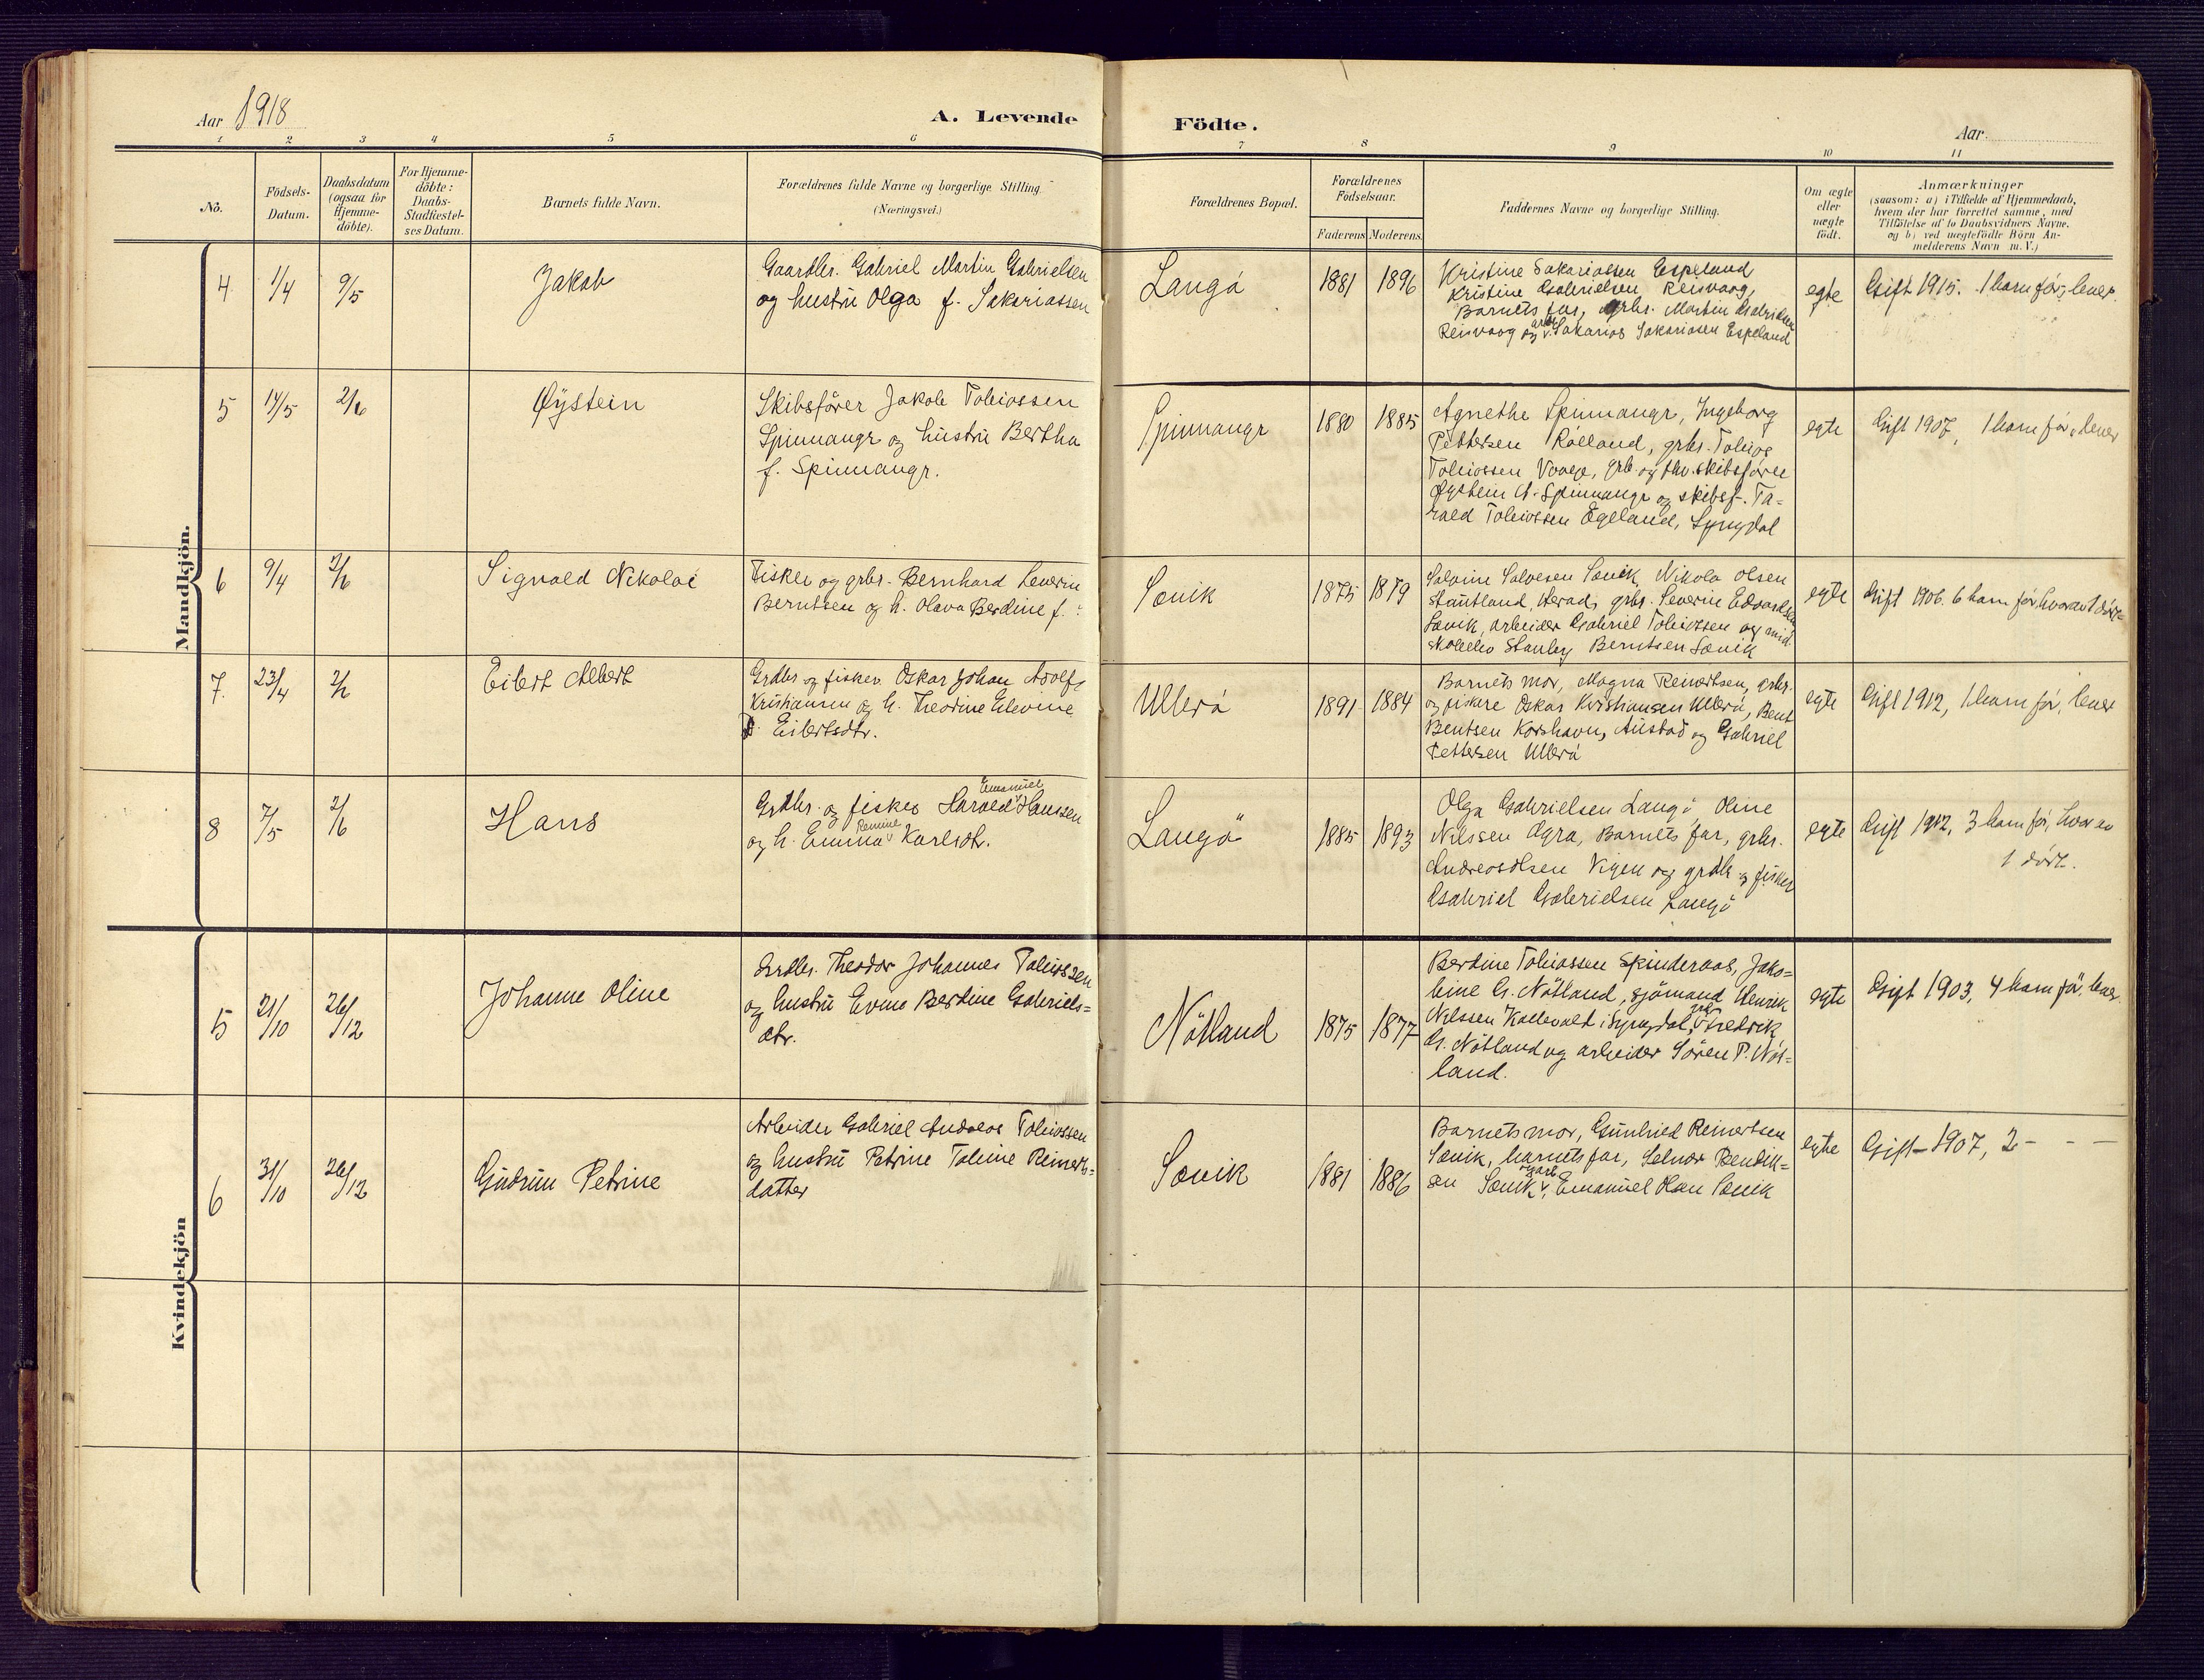 Aar 1918
A. Levende Födte.
Aar
1 2 3 4 5 6 7 8 9 10 11
No.
Födsels-
Datum.
Daabsdatum
(ogsaa for
Hjemme-
döbte).
For Hjemme-
döbte:
Daabs-
Stadfæstel-
ses Datum.
Barnets fulde Navn.
Forældrenes fulde Navne og borgerlige Stilling.
(Næringsvei.)
Forældrenes Bopæl.
Forældrenes
Födselsaar.
Faderens
Moderens.
Faddernes Navne og borgerlige Stilling.
Om ægte
eller
uægte
födt.
Anmærkninger
(saasom: a) i Tilfælde af Hjemmedaab,
hvem der har forrettet samme, med
Tilföielse af to Daabsvidners Navne,
og b) ved uægtefödte Börn An-
melderens Navn m. V.)
Mandkjön.
4 1/4 9/5 Jakob
Gaardbr. Gabriel Martin Gabrielsen
og hustru Olga f. Sakariassen
Langö 1881 1896
Kristine Sakariassen Espeland
Kristine Gabrielsen Reisvaag,
Barnets far, grbr. Martin Gabrielsen
Reisvaag og arb. Sakarias Sakariasen Espeland
egte
Gift 1915. 1 barn för, lever.
5 14/5 2/6 Øystein
Skibsförer Jakob Tobiassen
Spinnangr og hustru Bertha
f. Spinnangr.
Spinnangr 1880 1885
Agnethe Spinnangr, Ingeborg
Pettersen Rölland, grbr. Tobias
Tobiassen Vaage, grb. og fhv. skibsförer
Øystein A. Spinnangr og skibsf. Ta-
rald Tobiassen Egeland, Lyngdal
egte
Gift 1907, 1 barn för, lever
6 9/4 2/6 Sigvald Nikolai
Fisker og grbr. Bernhard Severin
Berntsen og h. Olava Berdine f.
Sævik 1875 1879
Salvine Salvesen Sævik, Nikola Olsen
Stautland, Herad, grbr. Severin Edvardsen
Sævik, arbeider Gabriel Tobiassen og
Stanley Berntsen Sævik
egte
Gift 1906. 6 barn för, hvorav 1 död
7. 23/4 2/6 Eilert Albert
Grdbr og fisker Oskar Johan Adolf
Kristiansen og h. Theodine Elevine
Eilertsdtr.
Ullerö 1891 1884
Barnets mor, Magna Reinertsen, grbr.
og fiskere Oskar Kristiansen Ullerö, Bent
Bentsen Korshavn, Austad og Gabriel
Pettersen Ullerö
egte
Gift 1912, 1 barn för, lever
8 7/5 2/6 Hans
Emanuel
Grdbr. og fisker Harald Hanssen
Remine
og h. Emma Karlsdtr.
Langö 1885 1893
Olga Gabrielsen Langö, Oline
Nilssen Agra, Barnets far, grbr.
Andreas Olsen Vigen og grdb. og fisker
Gabriel Gabrielsen Langö
egte
Gift 1912, 3 barn för, hvorav
1 död.
Kvindekjön
5 21/10 26/12 Johanne Oline
Grdbr. Theodor Johannes Tobiassen
og hustru Evine Berdine Gabriels-
dtr.
Nötland 1875 1877
Berdine Tobiassen Spinderaas, Jako-
bine G. Nötland, sjömand Henrik
Nilssen Kallevalt i Lyngdal, grb. Fredrik
G. Nötland og arbeider Sören P. Nöt-
land.
egte
Gift 1903, 4 barn för, lever.
6 31/10 26/12 Gudrun Petrine
Arbeider Gabriel Andreas Tobiassen
og hustru Petrine Tobine Reinerts-
datter
Sævik 1881 1886
Barnets mor, Gunhild Reinertsen
Sævik, barnets far, Selmer Bendik-
sen Sævik, Emanuel Olsen Sævik
egte
Gift - 1907, 2 - - -